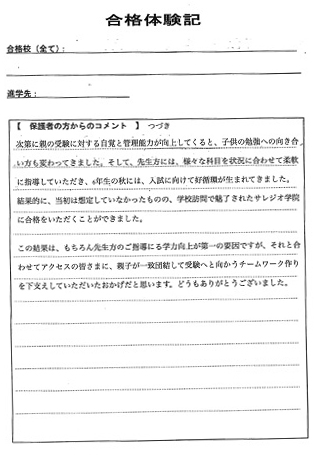 合格体験記
合格校（全て）：
進学先：
【　保護者の方からのコメント　】　つづき
次第に親の受験に対する自覚と管理能力が向上してくると、子供の勉強への向き合
い方も変わってきました。そして、先生方には、様々な科目を状況に合わせて柔軟
に指導していただき、6年生の秋には、入試に向けて好循環が生まれてきました。
結果的に、当初は想定していなかったものの、学校訪問で魅了されたサレジオ学院
に合格をいただくことができました。
この結果は、もちろん先生方のご指導による学力向上が第一の要因ですが、それと合
わせてアクセスの皆さまに、親子が一致団結して受験へと向かうチームワーク作り
を下支えしていただいたおかげだと思います。どうもありがとうございました。